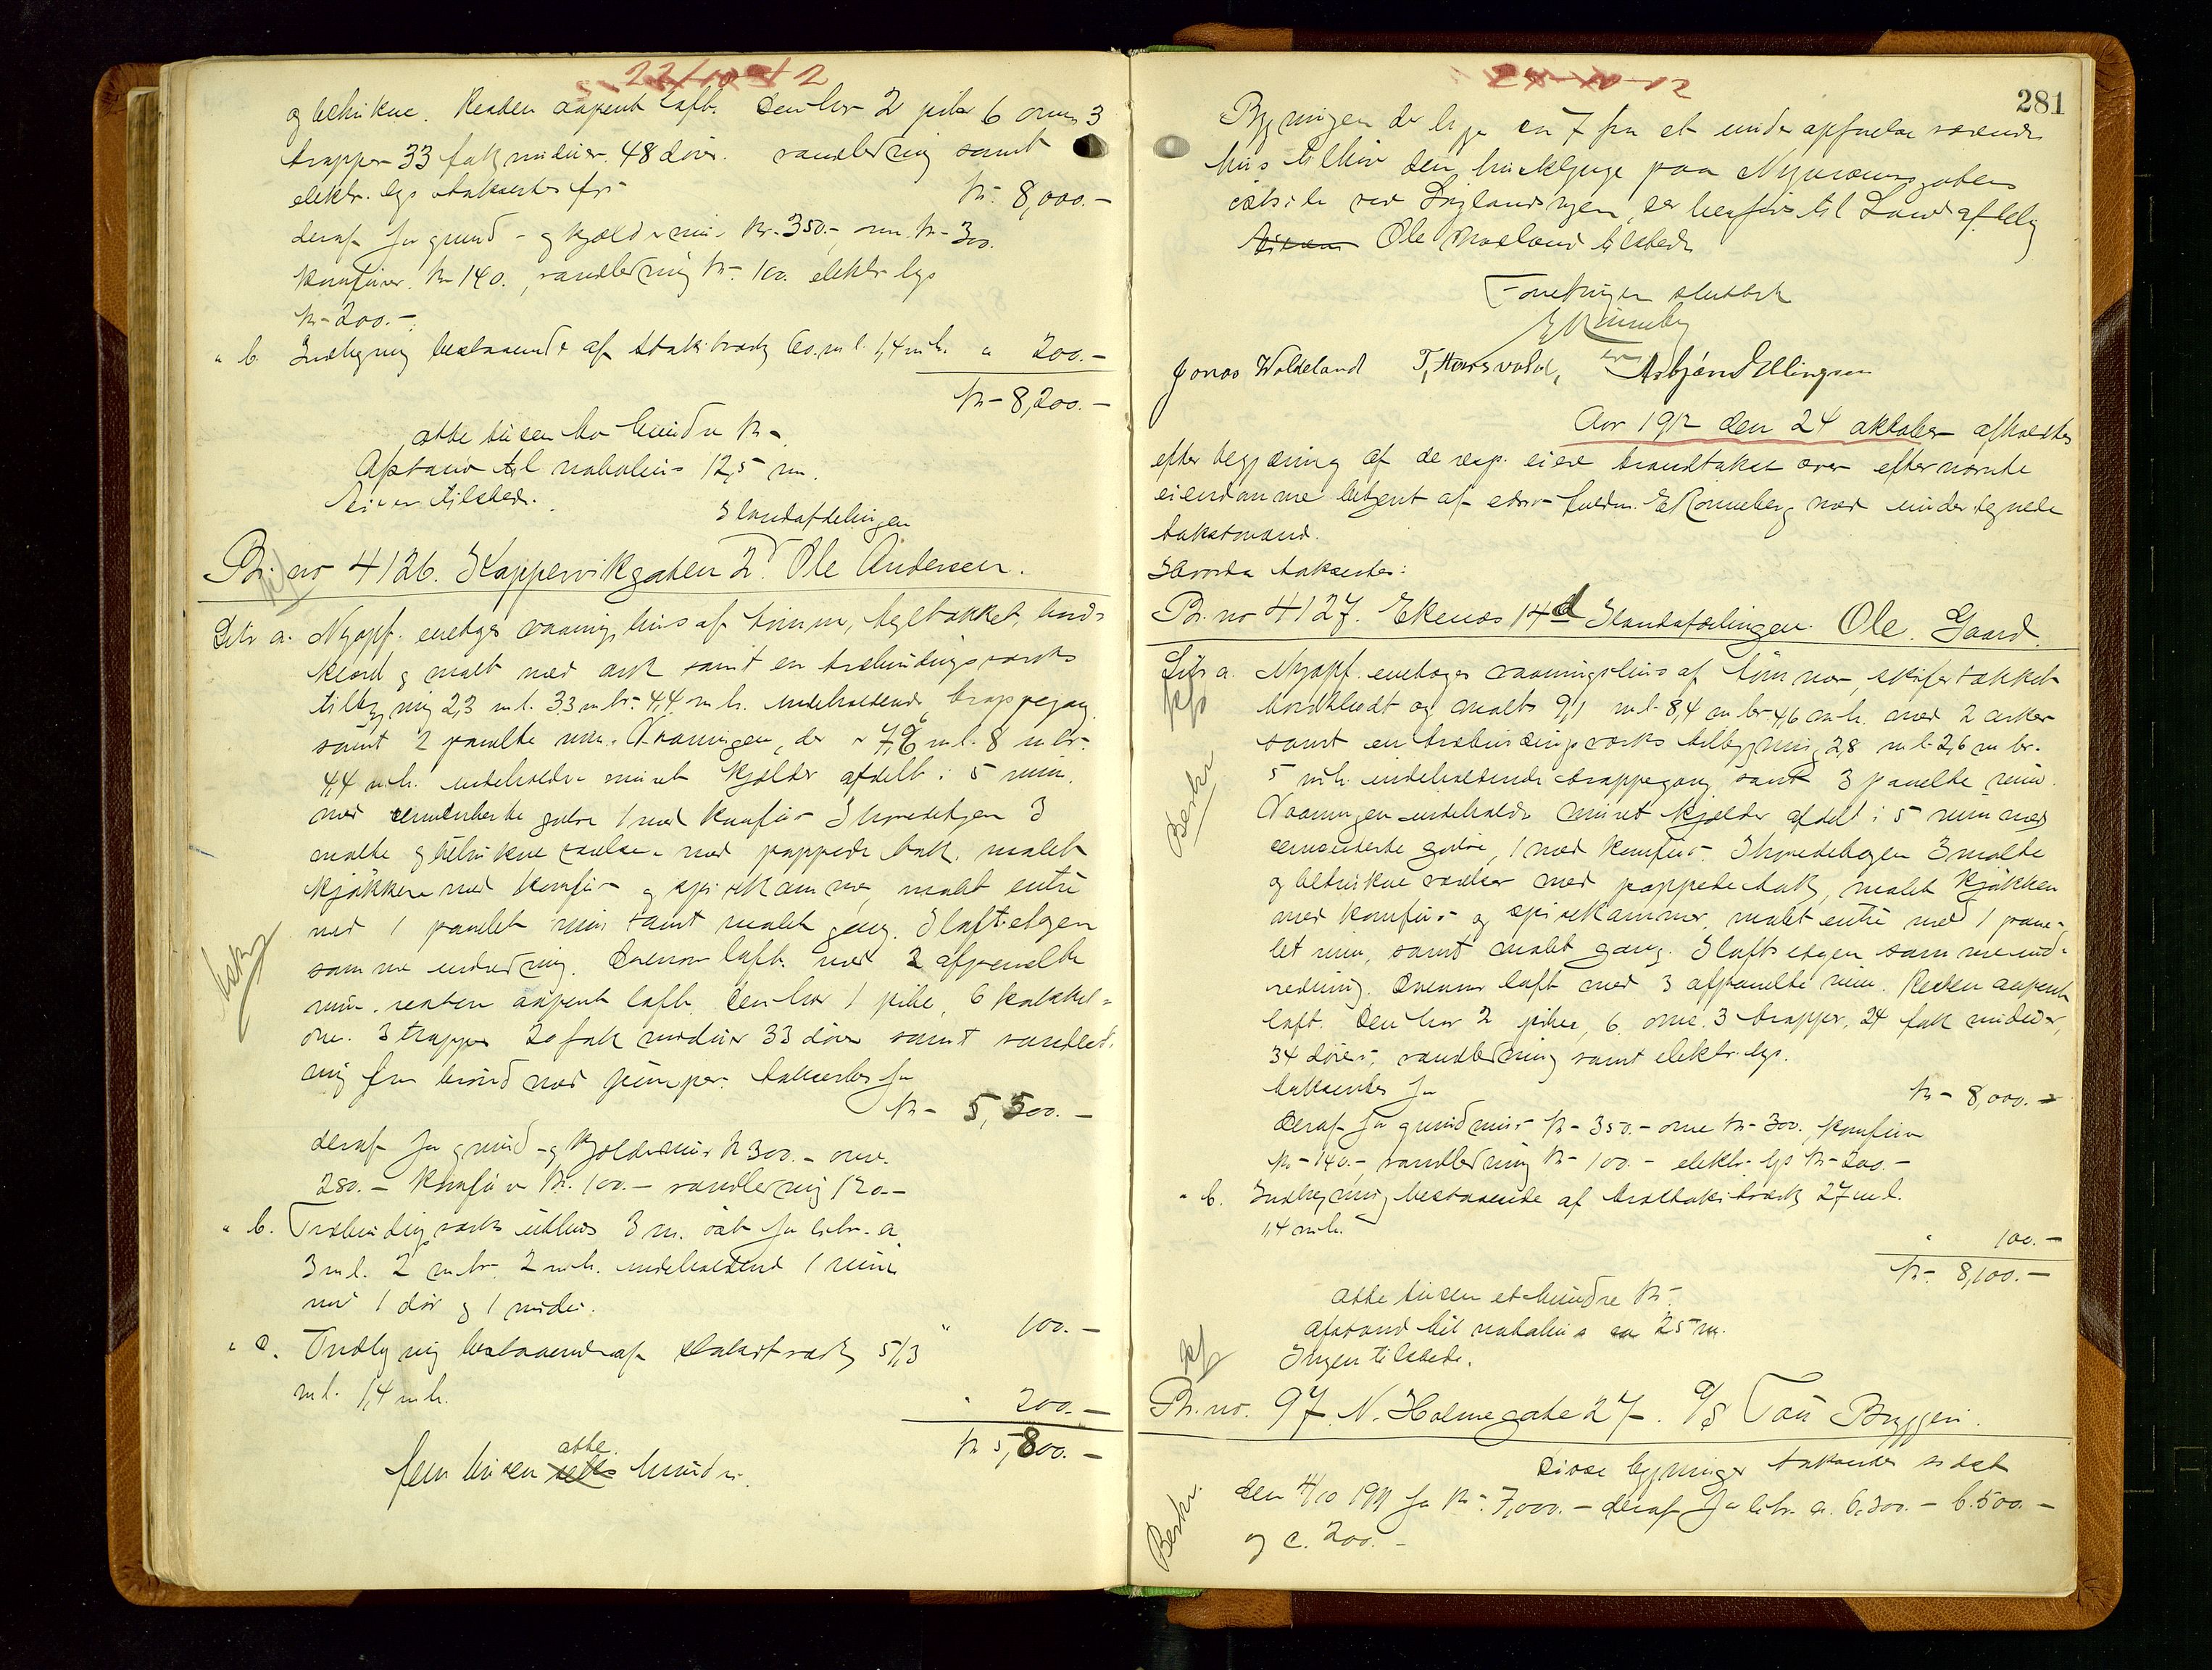 22/10-12
og betrukne. Resten aapent loft. Den har 2 piber 6 ovne 3
trapper 33 fag vinduer. 48 døre. vandledning samt
elektr. lys takseres for Kr. 8,000.-
deraf for grund- og kjældermur Kr. 350.-, ovne Kr. 300.
Komfurer. Kr 140., vandledning Kr. 100. elektr lys
Kr. 200.-.
" b. Indhegning bestaaende af stakitværk 60. m l. 1,4 m h. " 200.-
Kr 8,200.-
otte tusen to hundre Kr.
Afstand til nabohus 12,5 m.
Eieren tilstede.
I landafdelingen
Br. no 4126. Kappervikgaden 2. Ole Andersen.
Litr a. Nyopf. enetages vaaningshus af tømmer, tegltækket, bord-
klædt og malt med ark samt en træbindingsværks
tilbygning 2,3 m l. 3,3 m br. 4,4 m h. indeholdende trappegang
samt 2 panelte rum. Vaaningen, der er 7,8 m l. 8 m br.
4,4 m h. indeholder muret kjælder afdelt i 5 rum.
med cementerte gulve 1 med komfur I hovedetagen 3
malte og betrukne værelser med pappede tak, malet
kjøkken med komfur og spisekammer, malet entre
med 1 panelet rum samt malet gang. I loftsetagen
samme indredning. Ovenover loft med 2 afpanelte
rum. resten aapent loft. Den har 1 pibe, 6 kakkel-
ovne. 3 trapper 20 fag vinduer 33 døre samt vandled-
ning fra brønd med pumper. takseres for
Kr. 5,300.-
deraf for grund- og kjældermur Kr 300.- ovne.
280.- Komfur Kr. 100.- vandledning 120.-
" b. Træbindingsværks uthus 3 m. øst for litr. a
3 m l. 2 m br. 2 m h. indeholdende 1 rum
med 1 dør og 1 vindu. " 100.-
" c. Indhegning bestaaende af stakitværk 51,3
m l. 1,4 m h. " 200.-
Kr 5,800.-
fem tusen otte hundre
24-10-12
281
Bygningen der ligger ca 7 m fra et under opførelse værende
hus tilhører den husklynge paa Nymansgatens
østside ved Diglandsveien, der henføres til Landafdeling
Eieren Ole Moeland tilstede
Forretningen sluttet
E Rønneberg
Jonas Woldeland T. Hausvold, Asbjørn Ellingsen
Aar 1912 den 24 oktober afholdtes
efter begjæring af de resp. eiere brandtakst over efternævnte
eiendomme betjent af edsv. fuldm. E Rønneberg med undertegnede
takstmænd.
Hvorda taksertes:
Br. no 4127. Ekenæs 14d I landafdelingen. Ole Gaard.
Litr a. Nyopf. enetages vaaningshus af tømmer, skifertækket
bordklædt og malt 9,1 m l. 8,4 m br. 4,6 m h. med 2 arker
samt en træbindingsværks tilbygning 2,8 m l. 2,6 m br.
5 m h. indeholdende trappegang samt 3 panelte rum
Vaaningen indeholder muret kjælder afdelt i 5 rum med
cementerte gulve, 1 med komfur. I hovedetagen 3 malte
og betrukne værelser med pappede tak, malet kjøkken
med komfur og spisekammer, malet entre med 1 pane-
let rum, samt malet gang. I loftsetagen samme ind-
redning. Ovenover loft med 3 afpanelte rum. Resten aapent
loft. Den har 2 piber, 6 ovne. 3 trapper, 24 fag vinduer,
34 døre, vandledning samt elektr. lys.
takseres for Kr. 8,000.-
Deraf for grundmur Kr. 350.- ovne Kr. 300., komfur
Kr. 140.-, vandledning Kr. 100.- elektr. lys Kr. 200.-
" b. Indhegning bestaaende af træstakitværk 27 m l.
1,4 m h. " 100.-
Kr. 8,100.-
otte tusen et hundre Kr.
afstand til nabohus ca 25 m.
Ingen tilstede.
Br. no. 97 N. Holmegate 27. A/S Tou Bryggeri.
Disse bygninger takseredes sidst
den 4/10 1911 for Kr. 7,000.- deraf for litr. a. 6,300.- b. 500.-
og c. 200.-
Beskr.
Beskr.